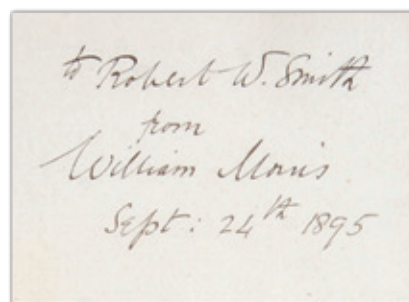 to Robert W. Smith
from
William Morris
Sept: 24th 1895